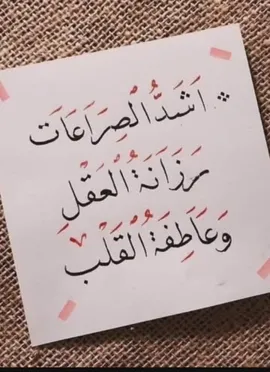 أَشَدُّ الصِّرَاعَاتِ
رَزَانَةُ الْعَقْلِ
وَعَاطِفَةُ الْقَلْبِ